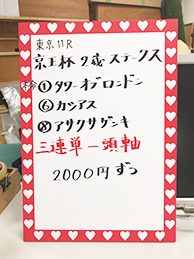 東京11R
京王杯2歳ステークス
本命①タワーオブロンドン
⑥カシアス
⑧アサクサゲンキ
三連単一頭軸
2000円ずつ